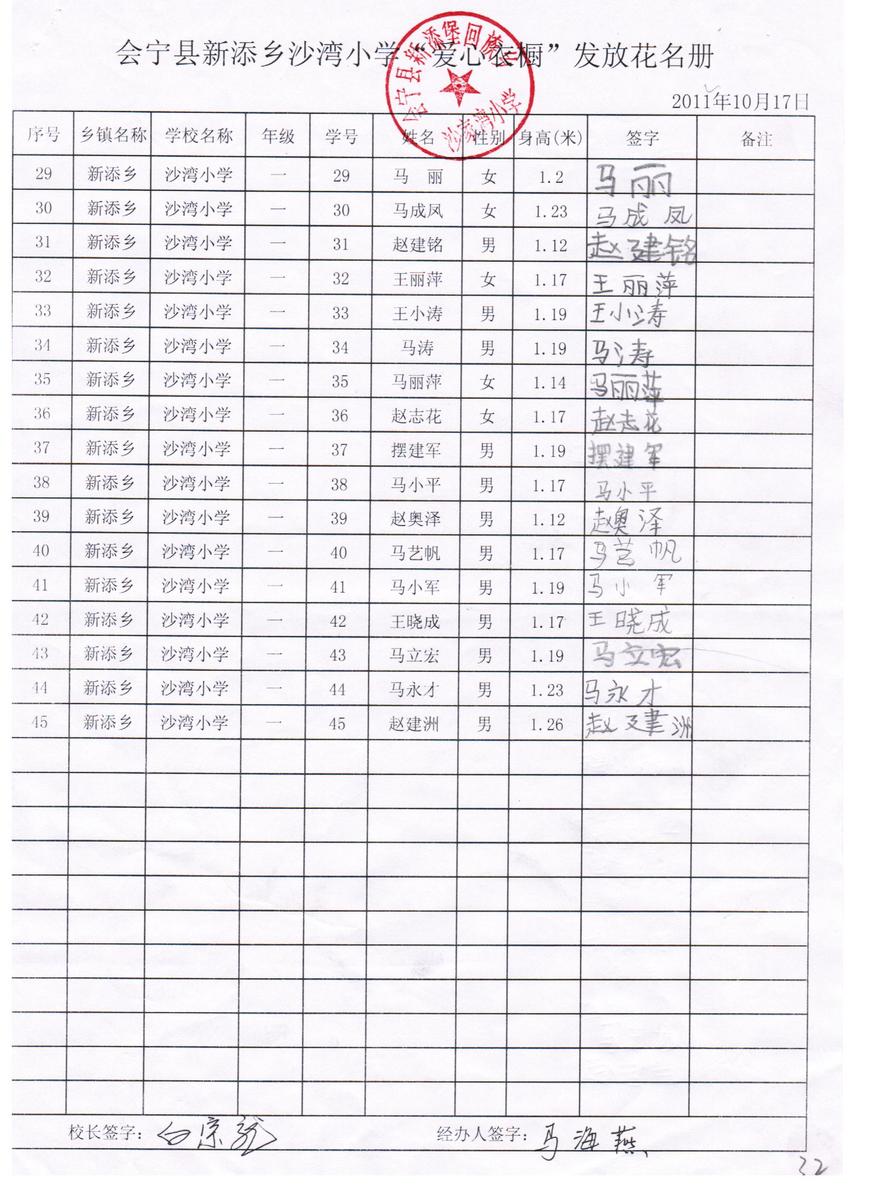 会宁县新添乡沙湾小学“爱心衣橱”发放花名册
会宁县新添堡回族乡
沙湾小学
2011年10月17日
序号 乡镇名称 学校名称 年级 学号 姓名 性别 身高(米) 签字 备注
29 新添乡 沙湾小学 一 29 马 丽 女 1.2 马丽
30 新添乡 沙湾小学 一 30 马成凤 女 1.23 马成凤
31 新添乡 沙湾小学 一 31 赵建铭 男 1.12 赵建铭
32 新添乡 沙湾小学 一 32 王丽萍 女 1.17 王丽萍
33 新添乡 沙湾小学 一 33 王小涛 男 1.19 王小涛
34 新添乡 沙湾小学 一 34 马涛 男 1.19 马涛
35 新添乡 沙湾小学 一 35 马丽萍 女 1.14 马丽萍
36 新添乡 沙湾小学 一 36 赵志花 女 1.17 赵志花
37 新添乡 沙湾小学 一 37 摆建军 男 1.19 摆建军
38 新添乡 沙湾小学 一 38 马小平 男 1.17 马小平
39 新添乡 沙湾小学 一 39 赵奥泽 男 1.12 赵奥泽
40 新添乡 沙湾小学 一 40 马艺帆 男 1.17 马艺帆
41 新添乡 沙湾小学 一 41 马小军 男 1.19 马小军
42 新添乡 沙湾小学 一 42 王晓成 男 1.17 王晓成
43 新添乡 沙湾小学 一 43 马立宏 男 1.19 马立宏
44 新添乡 沙湾小学 一 44 马永才 男 1.23 马永才
45 新添乡 沙湾小学 一 45 赵建洲 男 1.26 赵建洲
校长签字： 经办人签字：马海燕
22